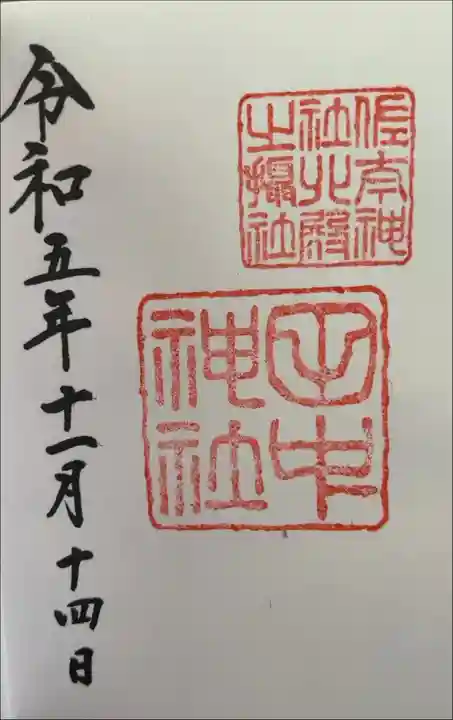 佐太神
社北殿
之攝社
田中
神社
令和五年十一月十四日